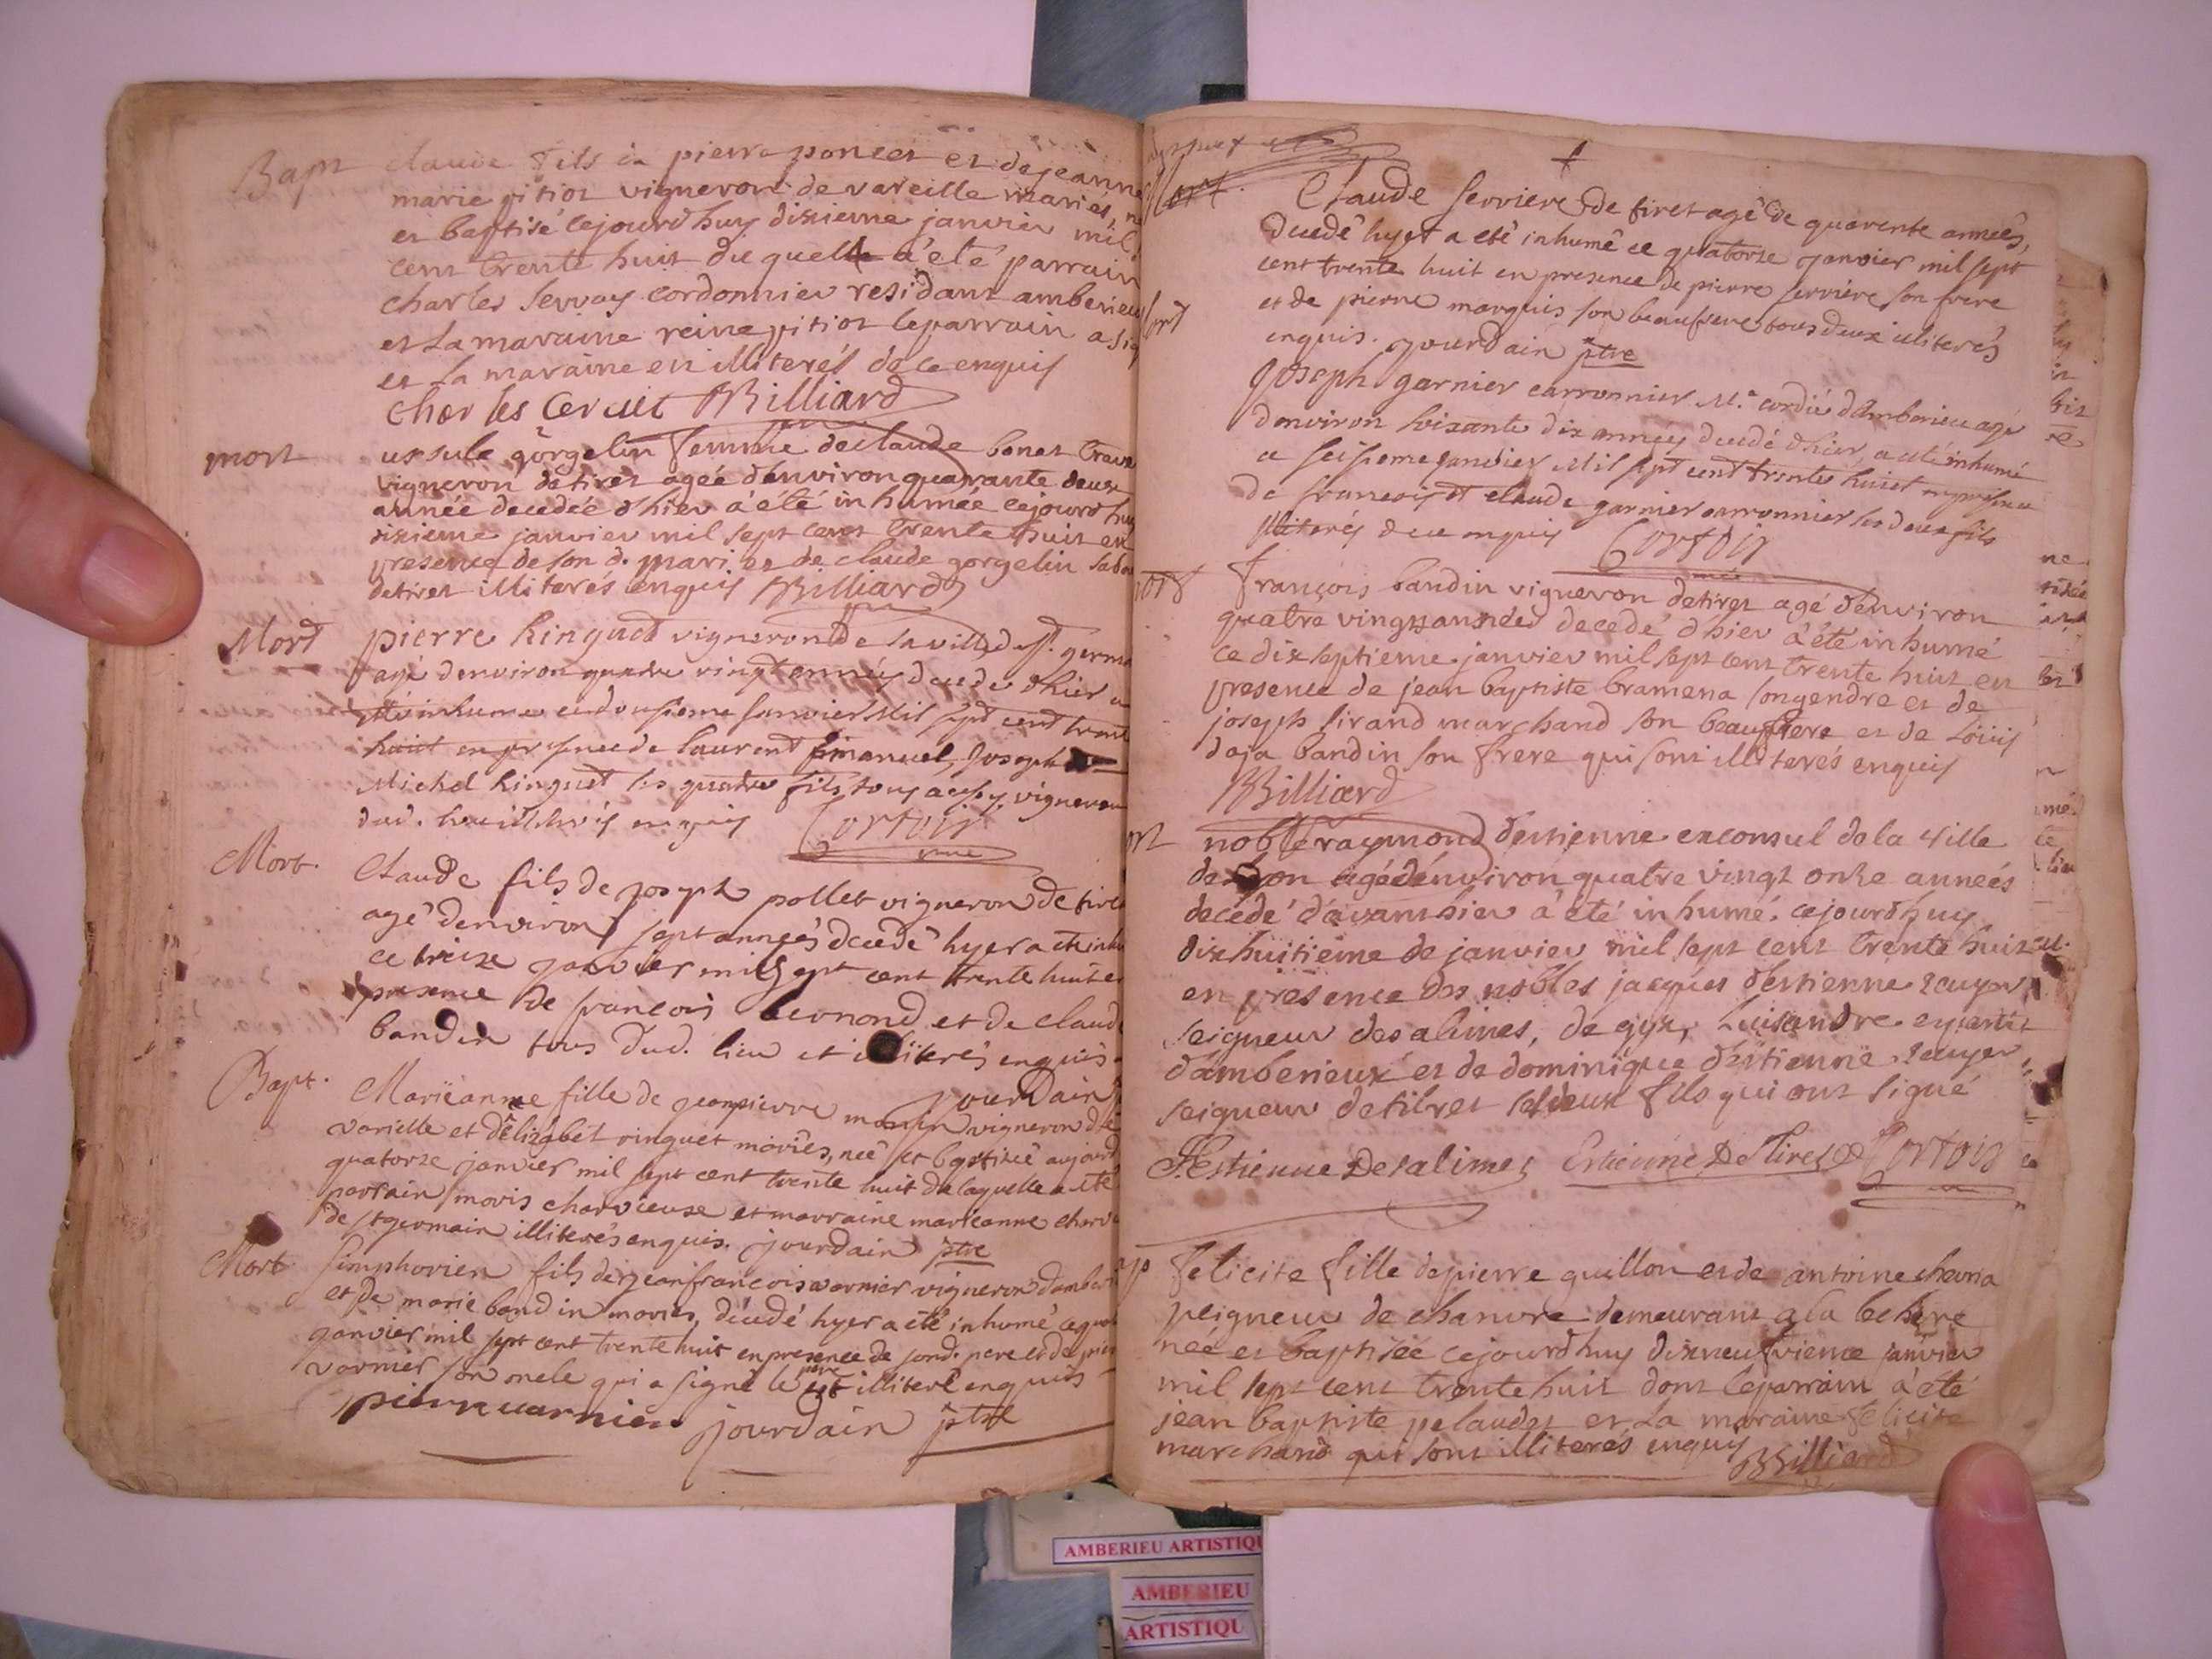 Bapt claude fils de pierre poncet et de jeanne
marie pitiot vigneron de vareille mariés, n
et baptisé cejourdhuy dixieme janvier mil
cent trente huit du quel a été parrain
charles servay cordonnier residant amberieu
et la maraine reine pitiot le parrain a sig
et la maraine est illiterés de ce enquis
Charles Cervet Billiard
mort ursule gorgelin femme de claude bonet
vigneron de tiret agée d'environ quarante deux
année decedée d'hier a été inhumée cejourd'huy
janvier mil sept cent trente huit en
presence de son d. mari et de claude gorgelin
de tiret illiterés enquis Billiard
Mort pierre Ringuet vigneron de la ville de St. germ
agé denviron quatre vingt années decede d'hier a
été inhumé ce douzieme Janvier Mil sept cent trent
huict en presence de laurent Emanuel, Joseph
Michel Ringuet les quatre fils tous aussy vigneron
dud. lieu illiterés enquis Cortois
Mort. Claude fils de joseph pollet vigneron de tiret
agé denviron sept années decedé hyer a ete inhu
ce treize janvier mil sept cent trente huit en
presence de francois bernond et de claude
bandin tous dud. lieu et illiterés enquis
jourdain
Bapt. Marieanne fille de jeanpierre vigneron de
varielle et délizabet ringuet mariés, née et baptisée aujourd
quatorze janvier mil sept cent trente huit de laquelle a eté
parrain charvieuse et marraine marieanne charv
de st germain illiterés enquis. jourdain ptre
Mort Simphorien fils de jeanfrancois varnier vigneron dambe
et de marie bandin mariés, décedé hyer a eté inhumé ce
janvier mil sept cent trente huit en presence de sond. pere et de pier
varnier son oncle qui a signé le pere est illiteré enquis
pierre varnier jourdain ptre
Mort. Claude Serriere de tiret agé de quarente années,
decedé hyer a eté inhumé ce quatorze janvier mil sept
cent trente huit en presence de pierre serriere son frere
et de pierre marquis son beaufrere tous deux illiterés
enquis. jourdain ptre
ort Joseph garnier carronnier d'Amberieu agé
denviron soixante dix années decedé d'hier, a eté inhumé
ce seizieme Janvier Mil sept cent trente huict en presence
de francois et claude garnier carronnier ses deux fils
illiterés de ce enquis Cortois
ort François bandin vigneron de tiret agé d'environ
quatre vingts années decedé d'hier a été inhumé
ce dix septieme janvier mil sept cent trente huit en
presence de jean baptiste bramena son gendre et de
joseph sirand marchand son beaufrere et de Louis
bandin son frere qui sont illiterés enquis
Billiard
ort noble raymond d'estienne exconsul de la ville
de Lyon agé dénviron quatre vingt onze années
decedé d'avanthier a été inhumé. cejourd'huy
dixhuitieme de janvier mil sept cent trente huit
en presence des nobles jacques d'estienne Ecuyer
seigneur des alimes, de gyx, Luisandre
d'amberieux et de dominique d'estienne Ecuyer
seigneur de tiret ses deux fils qui ont signé
Destienne Desalimes Estienne De Tiret Cortois
ap Felicite fille de pierre guillon et de antoine
peigneur de chanvre demeurant a la
née et baptisée cejourdhuy dixneufvieme janvier
mil sept cent trente huit dont le parrain a été
jean baptiste pelaudet et la maraine felicite
marchand qui sont illiterés enquis
Billiard
AMBERIEU ARTISTIQU
AMBERIEU
ARTISTIQU